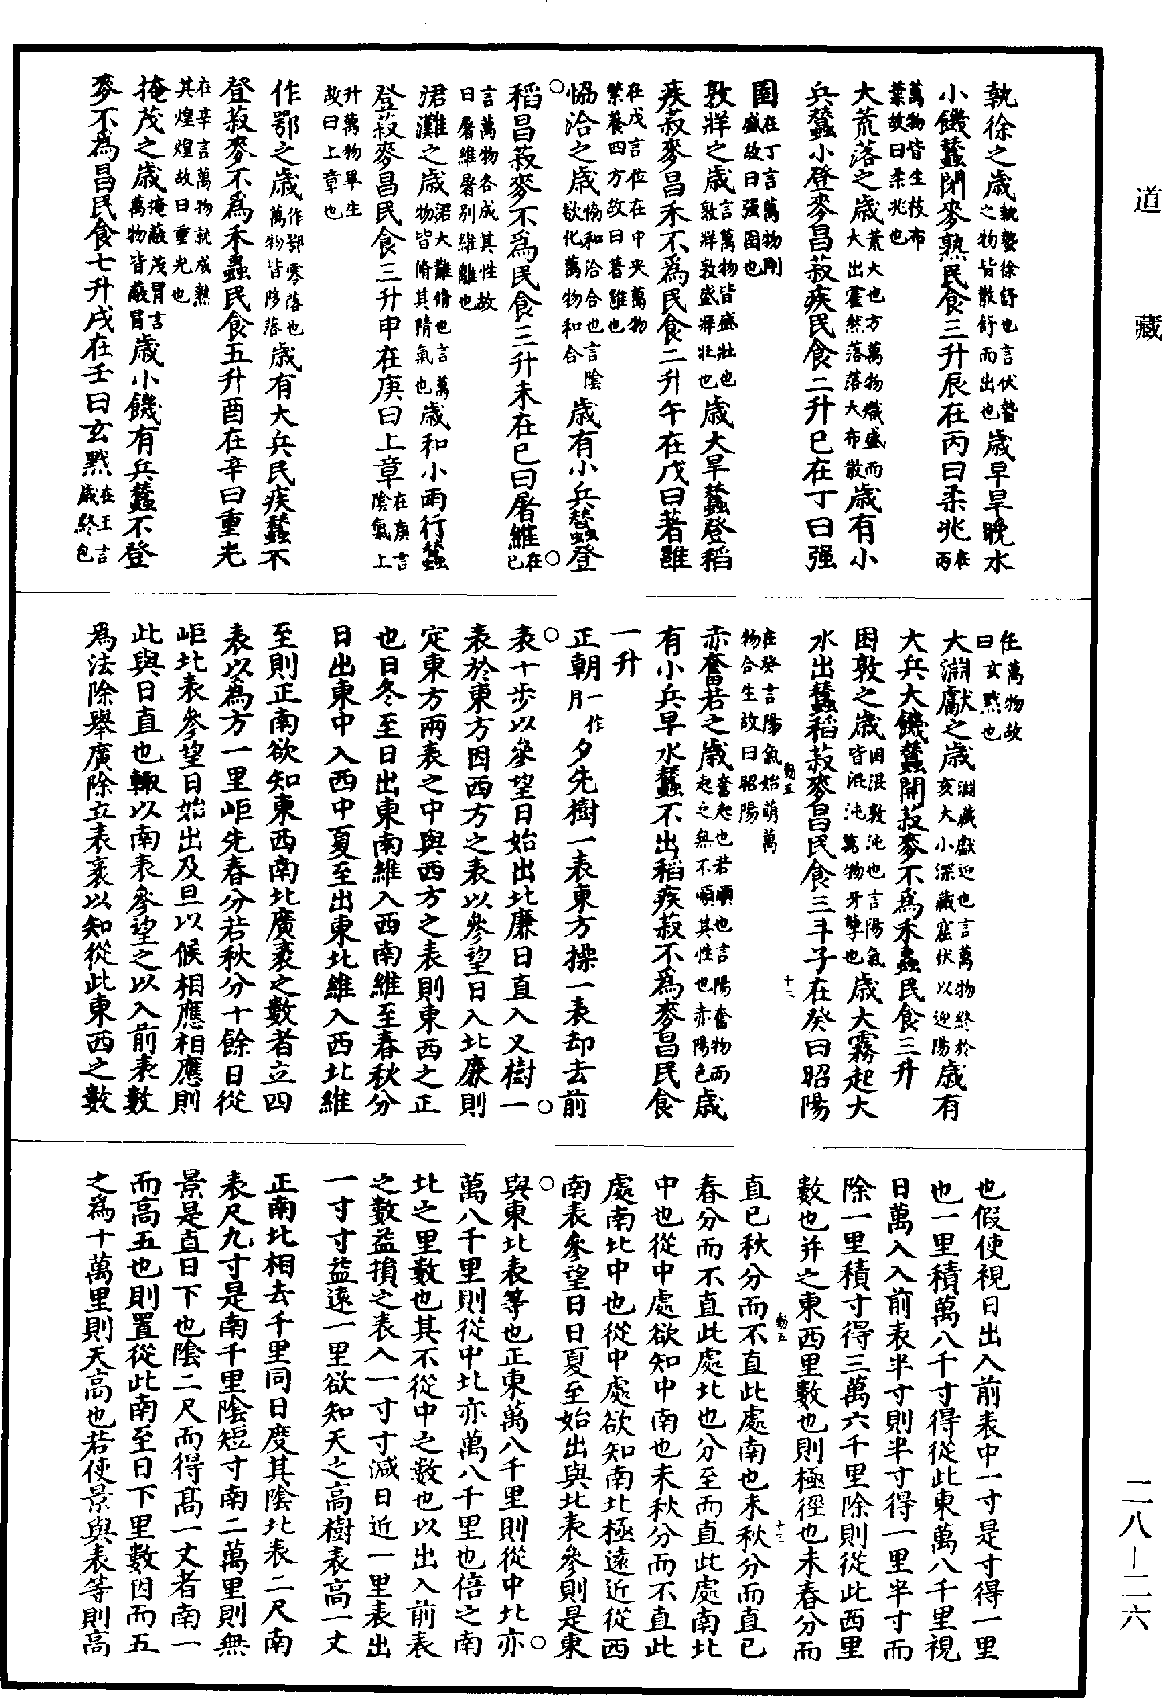 道藏
執徐之歲執蟄徐舒也言伏蟄之物皆散舒而出也歲早旱晚水
小饑蠶閉麥熟民食三升辰在丙曰柔兆在丙
萬物皆生枝布葉故曰柔兆也
大荒落之歲荒大也方萬物熾盛而大出霍然落落大布散歲有小
兵蠶小登麥昌菽疾民食二升巳在丁曰强
圉在丁言萬物剛盛故曰强圉也
敦牂之歲言萬物皆盛壯也敦牂敦盛牂壯也歲大旱蠶登稻
疾菽麥昌禾不為民食二升午在戊曰著雝
在戊言位在中央萬物繁養四方故曰著雝也
協洽之歲協和洽合也言陰欲化萬物和合歲有小兵蠶登
稻昌菽麥不為民食三升未在己曰屠維在己
言萬物各成其性故曰屠維屠別維離也
涒灘之歲涒大灘脩也言萬物皆脩其精氣也歲和小雨行蠶
登菽麥昌民食三升申在庚曰上章在庚言陰氣上
升萬物畢生故曰上章也
作鄂之歲作鄂零落也萬物皆陊落歲有大兵民疾蠶不
登菽麥不為禾蟲民食五升酉在辛曰重光
在辛言萬物就成熟其煌煌故曰重光也
掩茂之歲掩蔽茂冒言萬物皆蔽冒歲小饑有兵蠶不登
麥不為昌民食七升戌在壬曰玄黓在壬言歲終包
任萬物故曰玄黓也
大淵獻之歲淵藏獻迎也言萬物終於亥大小深藏窟伏以迎陽歲有
大兵大饑蠶開菽麥不為禾蟲民食三升
困敦之歲困混敦沌也言陽氣皆混沌萬物牙孽也歲大霧起大
水出蠶稻菽麥昌民食三斗子在癸曰昭陽
在癸言陽氣始萌萬物合生故曰昭陽
赤奮若之歲奮起也若順也言陽奮物而起之無不順其性也赤陽色歲
有小兵早水蠶不出稻疾菽不為麥昌民食
一升
正朝一作月夕先樹一表東方操一表却去前
表十步以參望日始出北廉日直入又樹一
表於東方因西方之表以參望日入北廉則
定東方兩表之中與西方之表則東西之正
也日冬至日出東南維入西南維至春秋分
日出東中入西中夏至出東北維入西北維
至則正南欲知東西南北廣袤之數者立四
表以為方一里岠先春分若秋分十餘日從
岠北表參望日始出及旦以候相應相應則
此與日直也輒以南表參望之以入前表數
為法除舉廣除立表袤以知從此東西之數
也假使視日出入前表中一寸是寸得一里
也一里積萬八千寸得從此東萬八千里視
日萬入入前表半寸則半寸得一里半寸而
除一里積寸得三萬六千里除則從此西里
數也并之東西里數也則極徑也未春分而
直已秋分而不直此處南也未秋分而直已
春分而不直此處北也分至而直此處南北
中也從中處欲知中南也未秋分而不直此
處南北中也從中處欲知南北極遠近從西
南表參望日日夏至始出與北表參則是東
與東北表等也正東萬八千里則從中北亦
萬八千里則從中北亦萬八千里也倍之南
北之里數也其不從中之數也以出入前表
之數益損之表入一寸寸減日近一里表出
一寸寸益遠一里欲知天之高樹表高一丈
正南北相去千里同日度其陰北表二尺南
表尺九寸是南千里陰短寸南二萬里則無
景是直日下也陰二尺而得高一丈者南一
而高五也則置從此南至日下里數因而五
之為十萬里則天高也若使景與表等則高
二八-二六